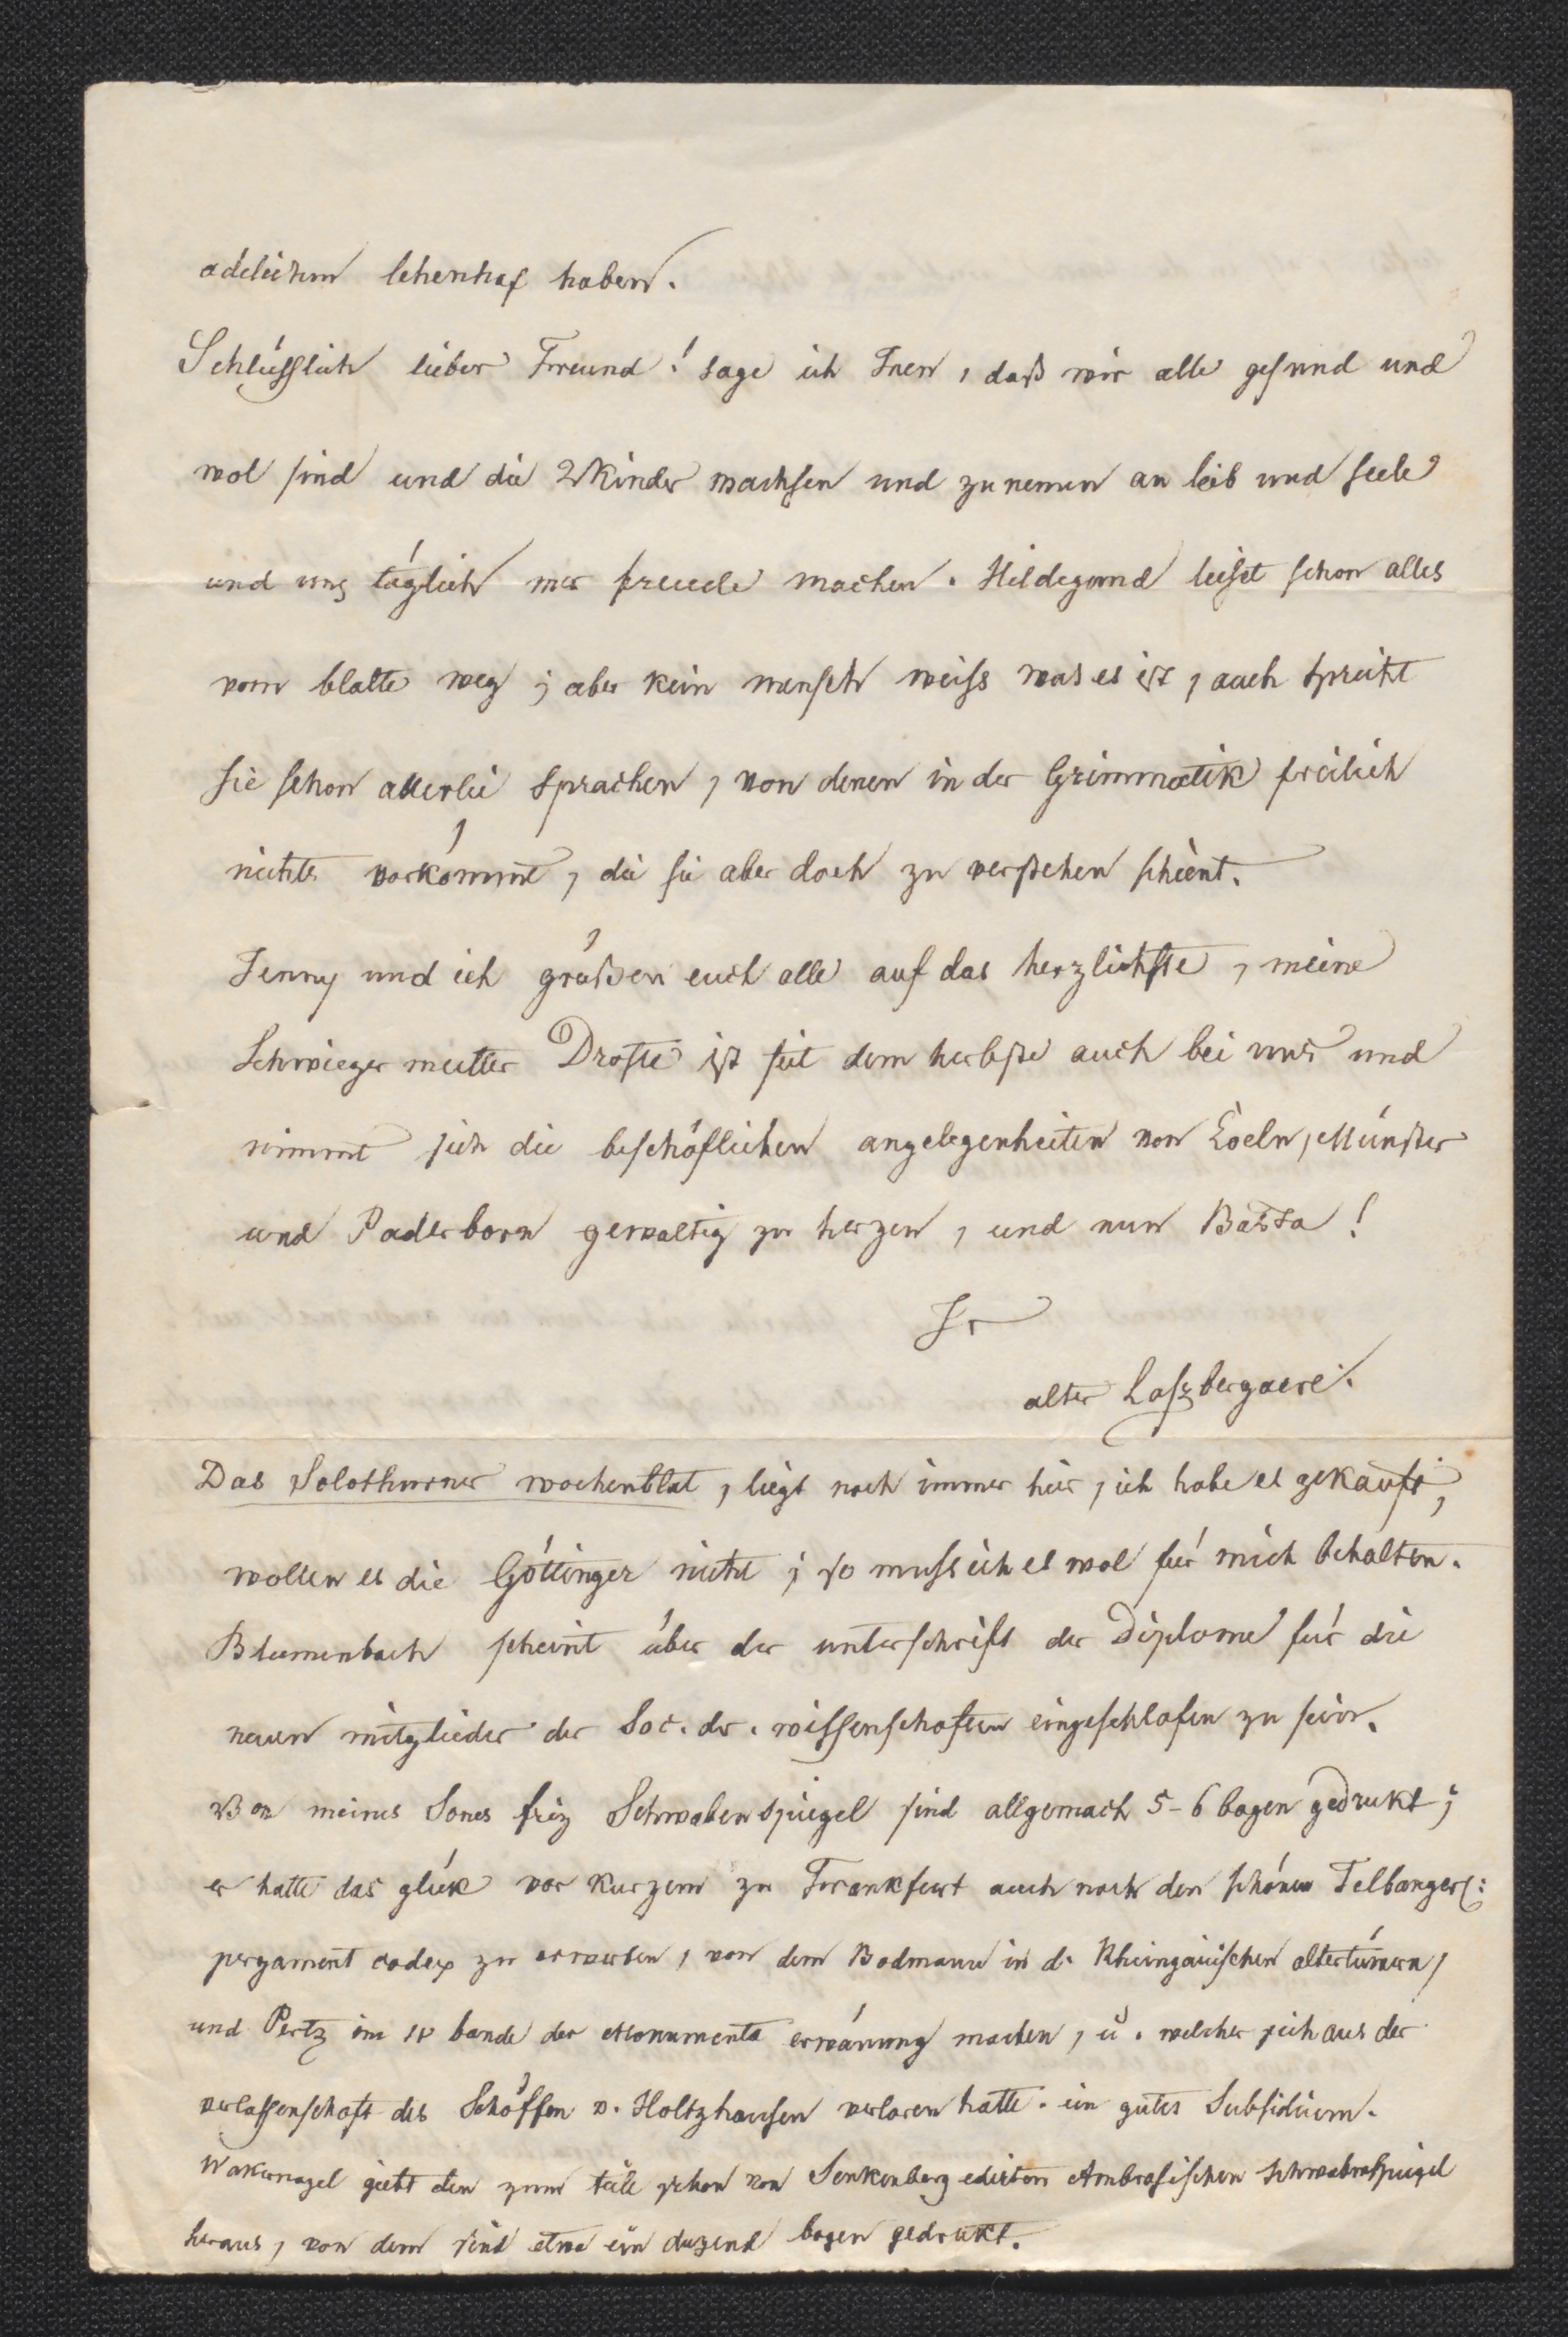 adelichen lehenhof haben.
Schlüsslich lieber Freund! sage ich Inen, daß wir alle gesund und
wol sind und die 2 Kinder wachsen und zunemen an leib und seele
und uns täglich mer freude machen. Hildegund lieset schon alles
vom blatte weg; aber kein mensch weiss was es ist, auch spricht
sie schon allerlei sprachen, von denen in der Grimmatik freilich
nichts vorkömmt, die sie aber doch zu verstehen scheint.
Jenny und ich grüßen euch alle auf das herzlichste, meine
Schwieger mutter Droste ist seit dem herbste auch bei uns und
nimmt sich die bischöflichen angelegenheiten von Cöeln, Münster
und Paderborn gewaltig zu herzen, und nun Basta!
Ir
alter Laszbergaere.
Das Solothurner wochenblat, liegt noch immer hier, ich habe es gekauft,
wollen es die Göttinger nicht; so muss ich es wol für mich behalten.
Blumenbach scheint über der unterschrift der Diplome für die
neuen mitglieder der Soc. der. wissenschaften eingeschlafen zu sein.
Von meines Sones friz Schwabenspiegel sind allgemach 5-6 bogen gedrukt;
er hatte das glük vor kurzem zu Frankfurt auch noch den schönen Telbanger:
pergament codex zu erwerben, von dem Bodmann in d. Rheingauischen altertümern,
und Pertz im IV bande der Monumenta erwänung machen, u. welcher sich aus der
verlassenschaft des Schöffen v. Holtzhausen verloren hatte. ein gutes Subsidium.
Wakernagel giebt den zum teile schon von Senkenberg edirten Ambrasischen Schwabenspiegel
heraus, von dem sind etwa ein duzend bogen gedrukt.